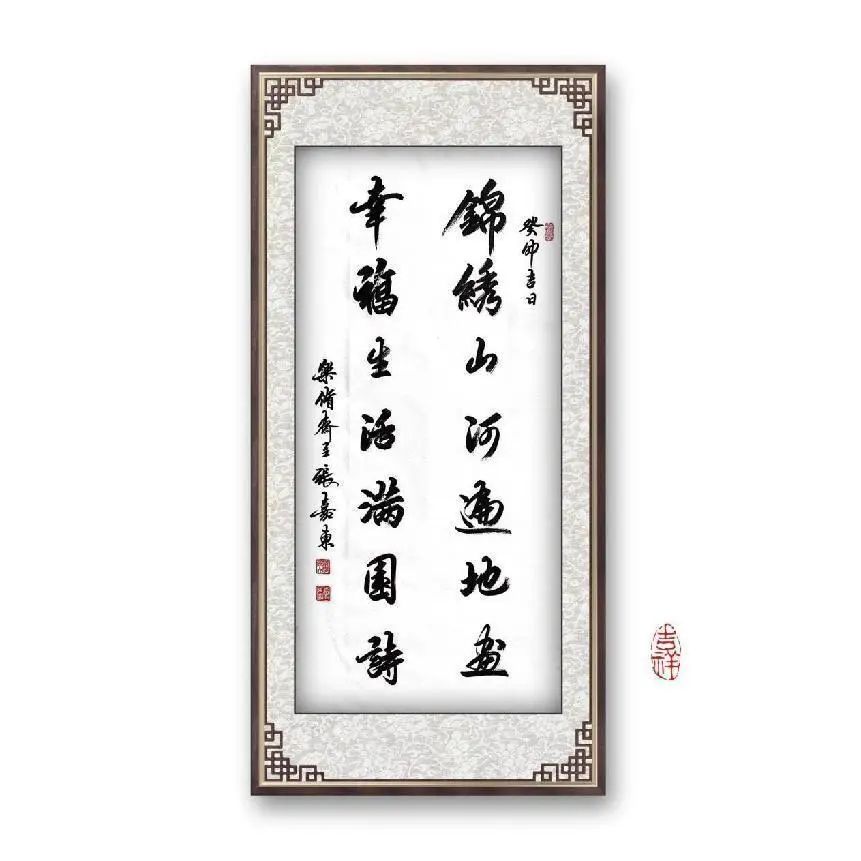 癸卯吉日
錦綉山河遍地画
幸福生活满園詩
樂脩齋主張嘉東
吉祥